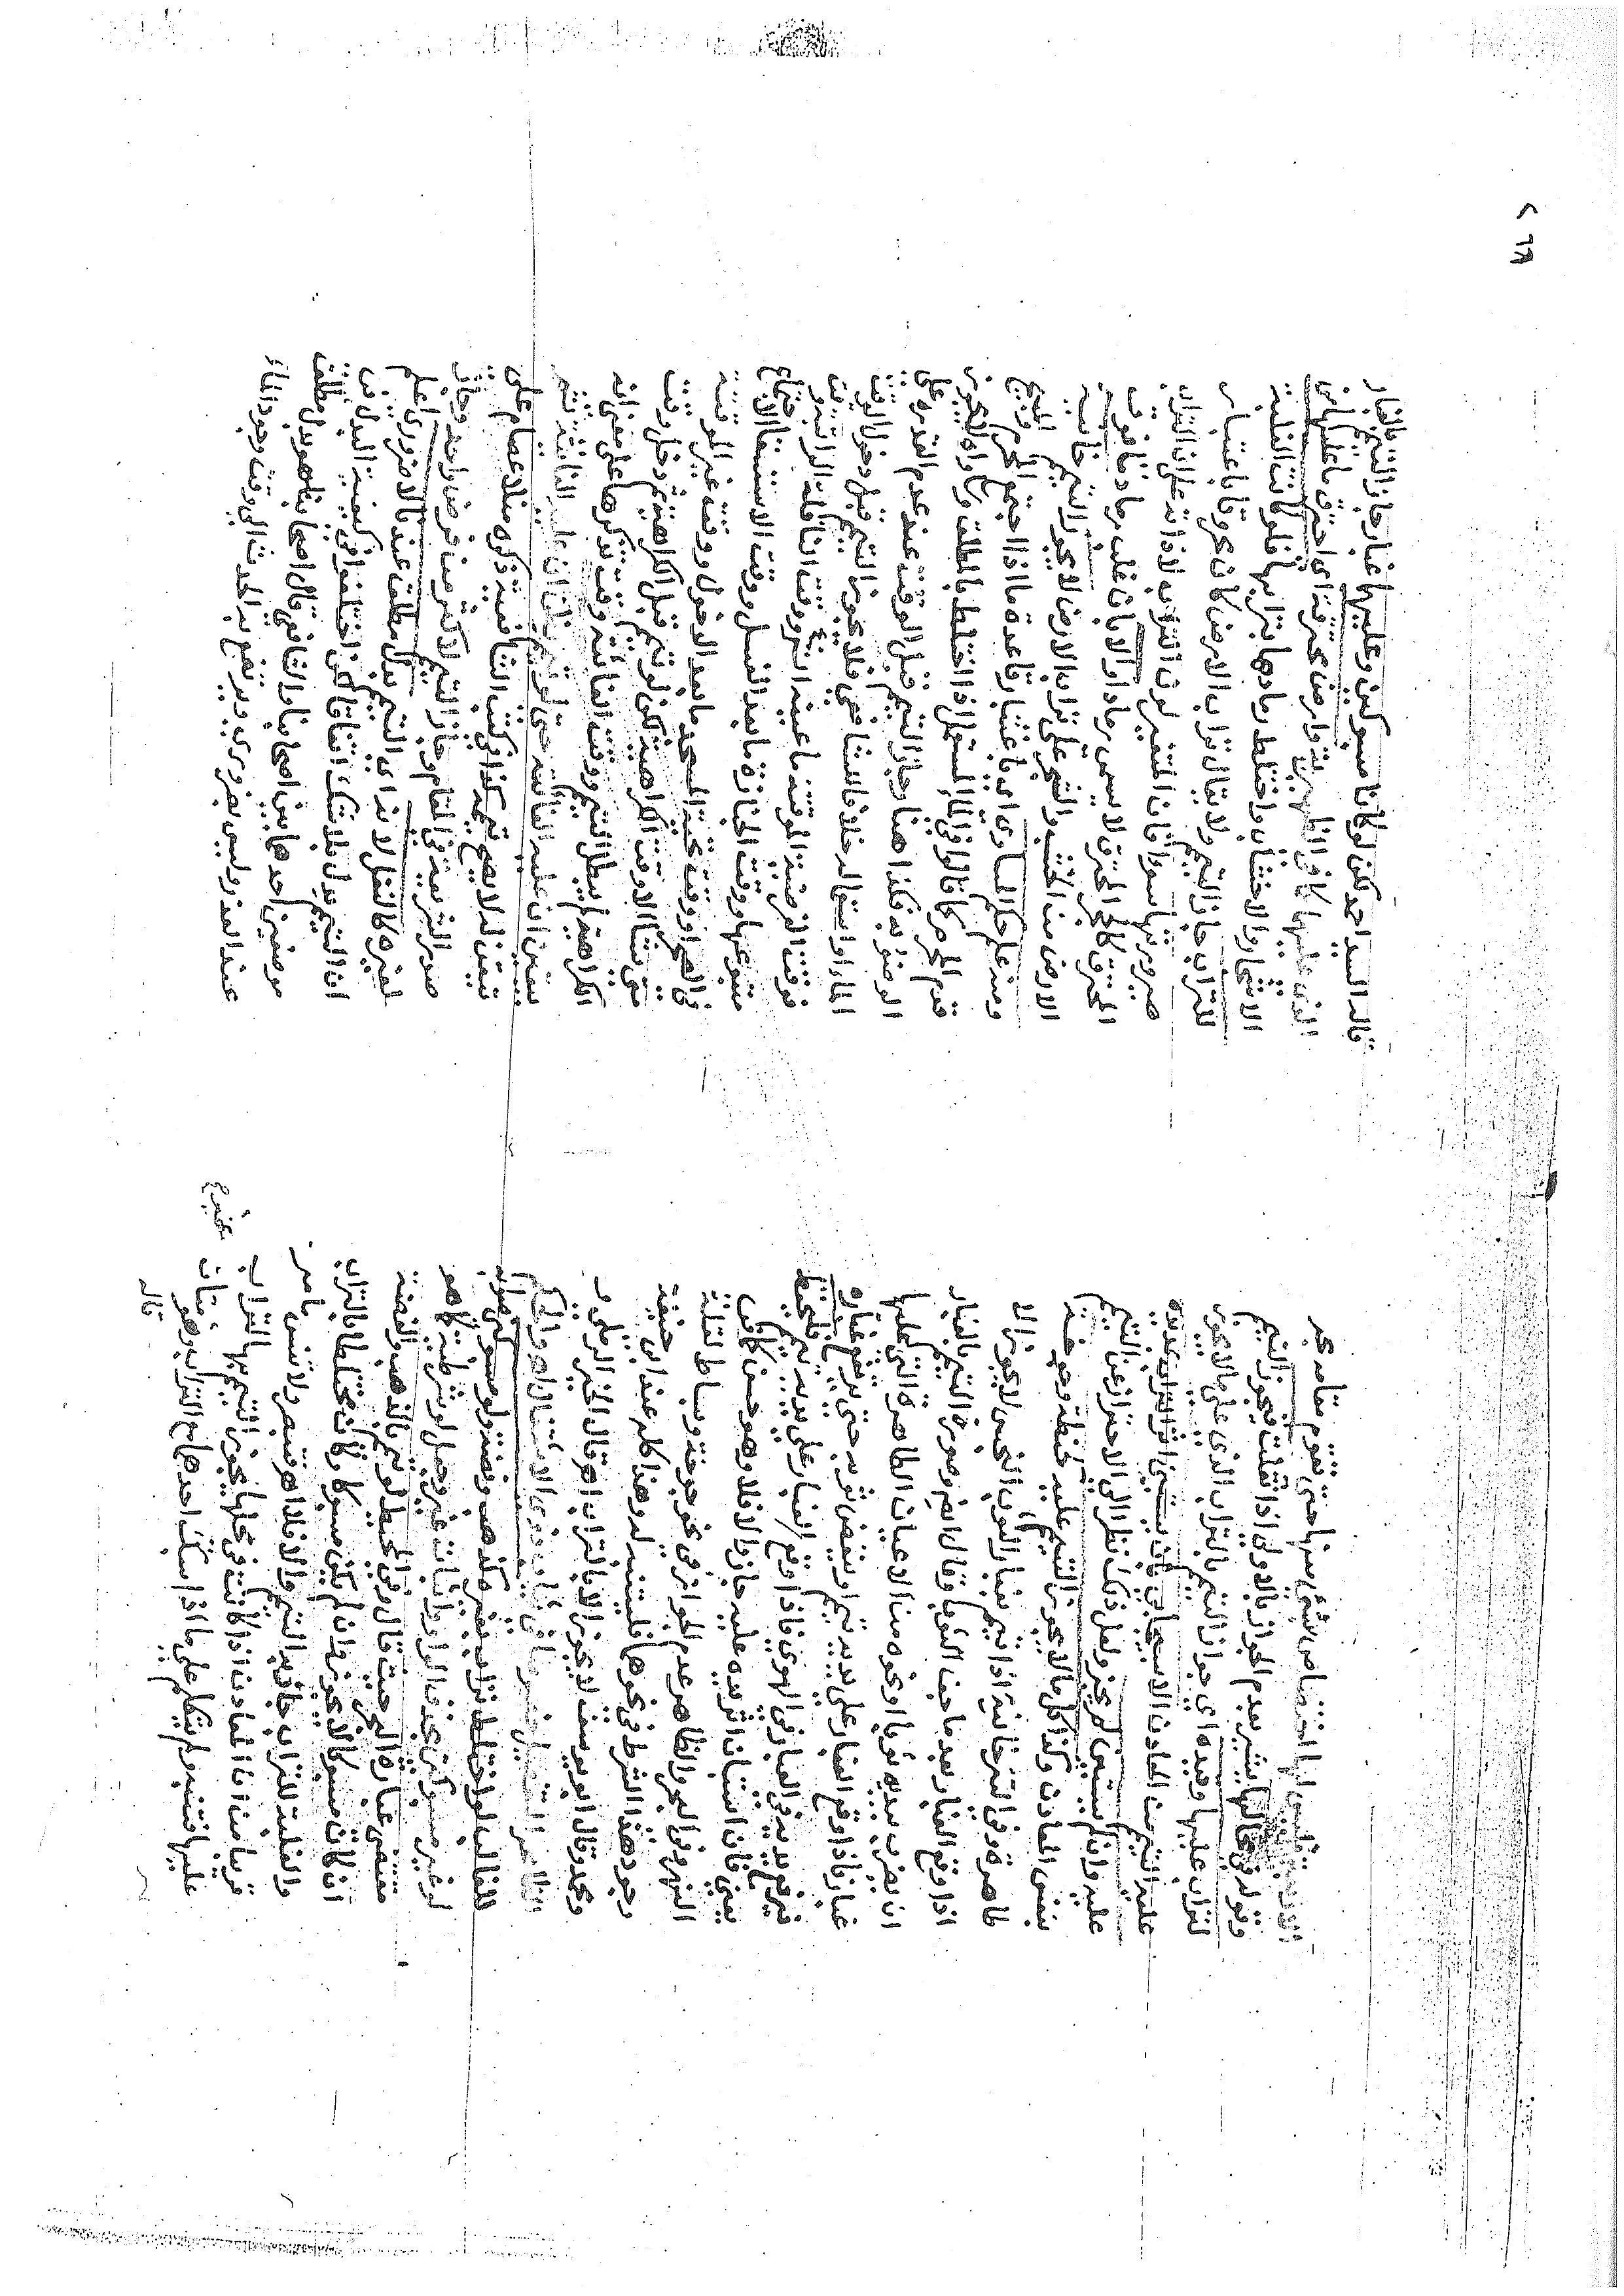 فليس لها اختصاص بشيء منها حتى تقوم مقامه بحر
وقوله في محالها يشير بعدم الجواز بالاولى اذا نقلت فيجوز التيمم
لتراب عليها وقيده اي جواز التيمم بالتراب الذي على ما لا يجوز
عليه التيمم من المعادن الاسبيجابي بان يستبين اثر التراب بمده
عليه وان لم يستبن لم يجز ولعل ذلك نظر الى الاحتراز عن التيمم
بنفس المعادن وكذا كل ما لا يجوز التيمم عليه كحنطة وجوخة
طاهرة وفي التتر خانية اذا تيمم بغبار الثوب النجس لا يجوز الا
اذا وقع الغبار بعد ما جف الثوب وقال ايضا وصورة التيمم بالغبار
ان يضرب بيديه ثوبا او نحوه من الاعيان الطاهرة التي عليها
غبار فاذا وقع الغبار على يديه تيمم او ينفض ثوبه حتى يرتفع غباره
فيرفع يديه في الغبار في الهوى فاذا وقع الغبار على يديه تيمم فليحفظ
يعني فان استبان اثر يده عليه جاز والا فلا وهو حسن كما في
النهر وفي البحر والظاهر عدم الجواز في نحو جوخة وبساط لقلة
وجود هذا الشرط في نحوها فليتنبه له وهذا كله عند ابي حنيفة
ومحمد وقال ابو يوسف لا يجوز الا بالتراب اهـ قال الخير الرملي و
الظاهر التفصيل
للغالب لو اختلط تراب بغيره كذهب وفضة ولو مسبوكين فقوله
لو غير مسبوكين بحذف الواو واثبات غير وجعل لو شرطية كما هو
مقتضى عبارة البحر حيث قال وفي المحيط لو تيمم بالذهب والفضة
ان كان مسبوكا لا يجوز وان لم يكن مسبوكا وكان مختلطا بالتراب
والغلبة للتراب جاز به التيمم والا فلا اهـ فتبصر ولا تنس ما مر
قريبا من ان المعادن اذا كانت في محلها يجوز التيمم بها للتراب
عليها فتنبه ولم يتكلم على ما اذا سبك احدهما مع التراب وهو متأت
قال
قال السيد احمد لكن لو كانا مسبوكين وعليهما غبار جاز التيمم بالغبار
الذي عليهما كما في الظهيرية وارض محترقة اي احترق ما عليها من
الاشجار والاحشاب واختلط رمادها بترابها فلو كانت الغلبة
للتراب جاز التيمم ولا يقال تراب الارض كان محروقا باعتبار
صيرورتها سوداء فان التغير لون التراب لا ذاته على ان التراب
المحترق كالحجر المحترق لا يسمى رمادا والا بان غلب رمادها فوق
الارض من الخشب والشجر على تراب الارض لا يجوز التيمم خانية
ومنه علم حكم المساوي اي باعتبار قاعدة ما اذا اجتمع المحرم والمبيح
قدم المحرم كما قالوا في الماء المستعمل اذا اختلط بالمطلق وساواه لا يجوز
الوضوء به فكذا هنا وجاز التيمم قبل الوقت عند عدم القدرة على
الماء او استعماله خلافا للشافعي فلا يجوز التيمم قبل دخول الوقت
فوقت الفريضة المؤقتة ما عينه الشرع ووقت النافلة الراتبة وقت
متبوعها ووقت الجنازة ما بعد الغسل ووقت الاستسقاء الاجتماع
في الصحراء ووقت تحية المسجد ما بعد الدخول ووقت غير المؤقتة
متى شاء الا وقت الكراهية لكن لو تيمم قبل الكراهية ثم دخل وقت
الكراهية لم يبطل التيمم ووقت الفائتة وقت تذكرها على معنى انه
يتيقن ان عليه الفائتة حتى لو تيمم
تيقن له لا يصح تيممه كذا في كتب الشافعية ذكره ملا عصام على
صدر الشريعة في التمام وجاز التيمم لاكثر من فرض واحد وجاز
لغيره كالنفل لانه اي التيمم بدل مطلق عندنا لا ضروري اعلم
ان التيمم بدل بلا شك اتفاقا لكن اختلفوا في كيفية البدل في
موضعين احدهما بين اصحابنا والشافعي قال اصحابنا هو بدل مطلق
عند العذر وليس بضروري ويرتفع به الحدث الى وقت وجود الماء